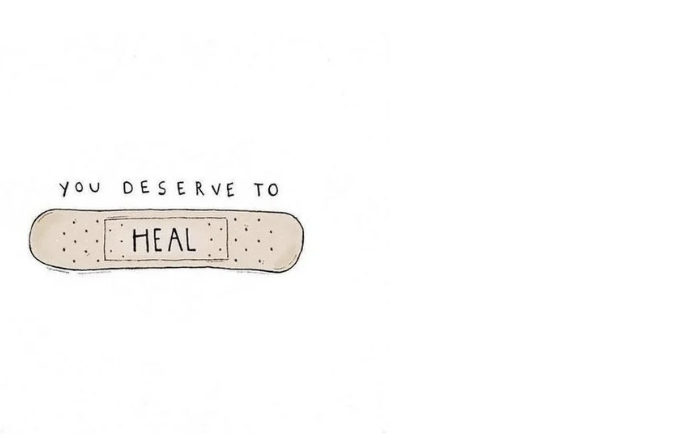 YOU DESERVE TO
HEAL